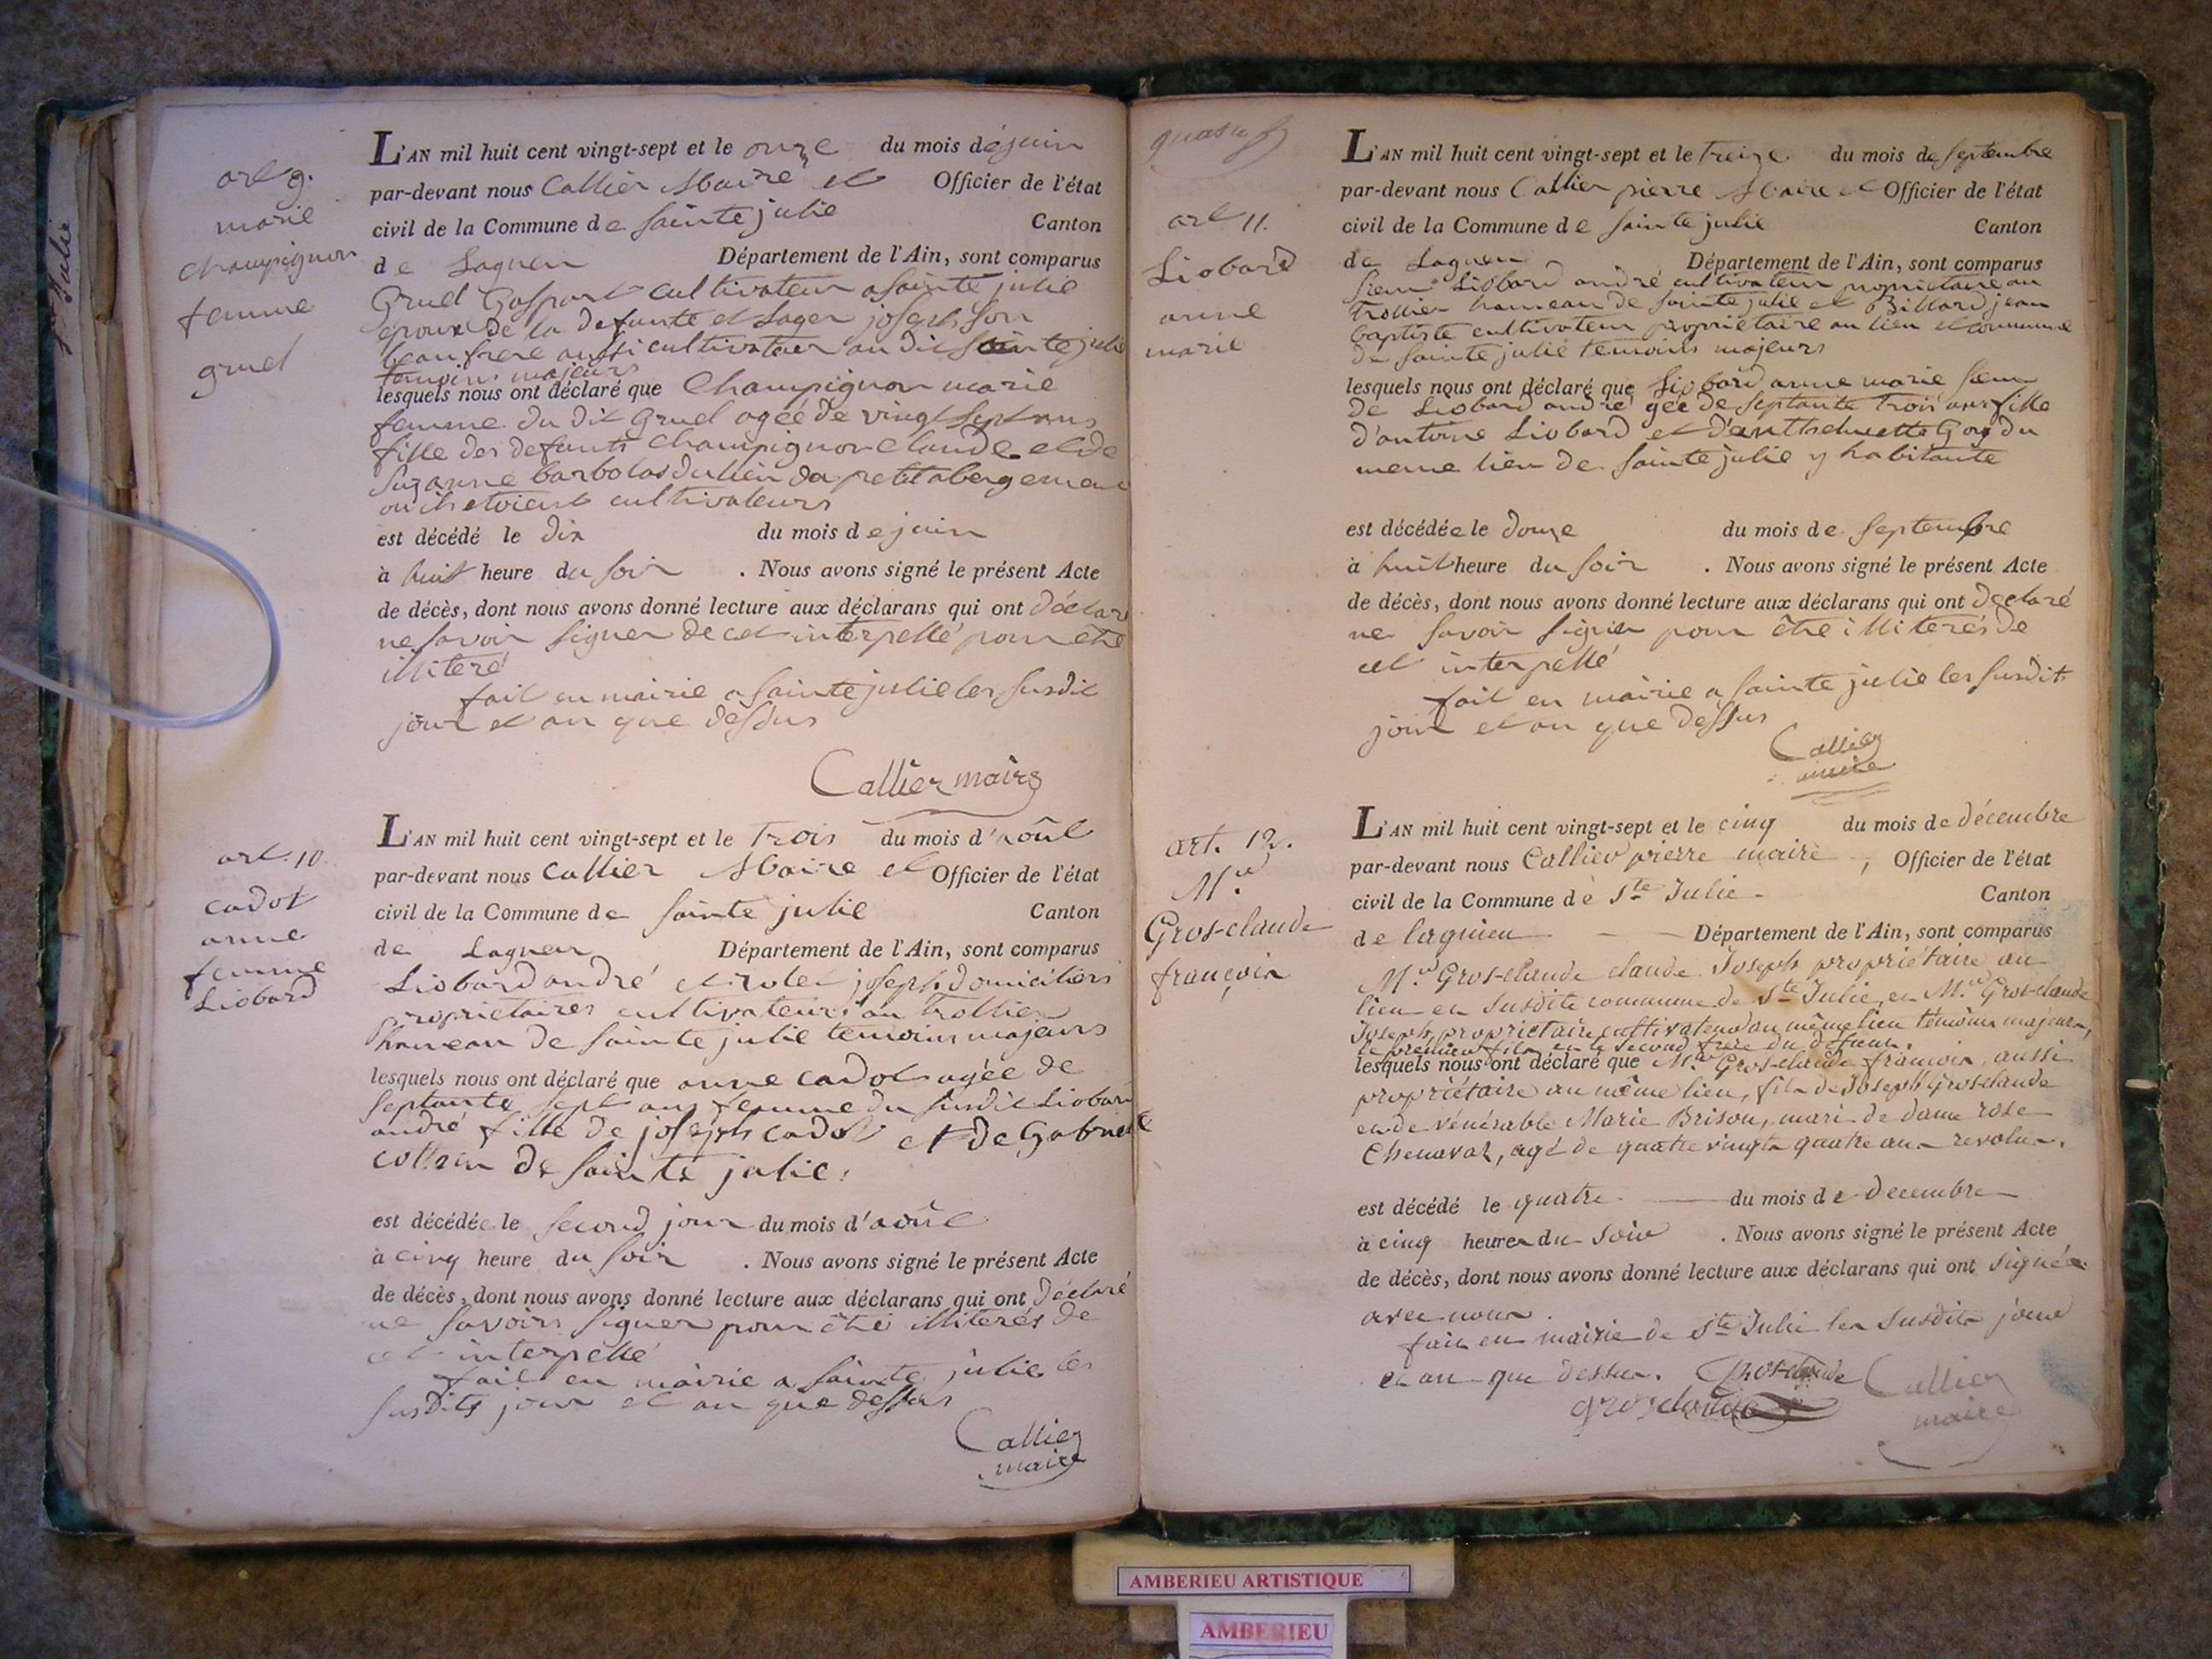 Ste Julie
art 9.
marie
champignon
femme
grud
L'AN mil huit cent vingt-sept et le onze du mois de juin
par-devant nous Callier Maire et Officier de l'état
civil de la Commune de Sainte julie Canton
de Lagneu Département de l'Ain, sont comparus
Grud Gaspard cultivateur a Sainte julie
epoux de la defunte et Lager joseph son
beau frere aussi cultivateur au dit Sainte julie
temoins majeurs
lesquels nous ont déclaré que Champignon marie
femme du dit Grud agée de vingt Sept ans
fille des defunts Champignon claude et de
Suzanne barbolas du lieu du petit abergement
ou ils etoient cultivateurs
est décédé le dix du mois de juin
à huit heure du soir . Nous avons signé le présent Acte
de décès, dont nous avons donné lecture aux déclarans qui ont déclaré
ne savoir signer de cet interpellé pour etre
illiteré
fait en mairie a Sainte julie les susdit
jour et an que dessus
Callier maire
art. 10.
cadot
anne
femme
Liobard
L'AN mil huit cent vingt-sept et le trois du mois d'août
par-devant nous Callier Maire et Officier de l'état
civil de la Commune de Sainte julie Canton
de Lagneu Département de l'Ain, sont comparus
Liobard andré et rolet joseph domiciliers
proprietaires cultivateurs au trollier
hameau de Sainte julie temoins majeurs
lesquels nous ont déclaré que anne cadot agée de
Septante sept ans femme du susdit Liobard
andré fille de joseph cadot et de Gabrielle
de Sainte julie.
est décédée le second jour du mois d'août
à cinq heure du soir . Nous avons signé le présent Acte
de décès, dont nous avons donné lecture aux déclarans qui ont déclaré
ne savoir signer pour être illiterés de
cet interpellé
fait en mairie a Sainte julie les
susdits jour et an que dessus
Callier
maire
art 11.
Liobard
anne
marie
L'AN mil huit cent vingt-sept et le treize du mois de septembre
par-devant nous Callier pierre Maire et Officier de l'état
civil de la Commune de Sainte julie Canton
de Lagneu Département de l'Ain, sont comparus
Sieur Liobard andré cultivateur proprietaire au
trollier hameau de Sainte julie et Billard jean
baptiste cultivateur propriétaire au lieu et commune
de Sainte julie temoins majeurs
lesquels nous ont déclaré que Liobard anne marie sœur
de Liobard andré gée de septante trois ans fille
d'antoine Liobard et d'anthelmette Goy du
meme lieu de Sainte julie y habitante
est décédée le douze du mois de septembre
à huit heure du soir . Nous avons signé le présent Acte
de décès, dont nous avons donné lecture aux déclarans qui ont declaré
ne savoir signer pour être illiterés de
cet interpellé
fait en mairie a Sainte julie les susdits
jour et an que dessus
Callier
maire
art. 12.
Mr
Gros-claude
françois
L'AN mil huit cent vingt-sept et le cinq du mois de décembre
par-devant nous Callier pierre maire , Officier de l'état
civil de la Commune de Ste Julie Canton
de lagnieu Département de l'Ain, sont comparus
Mr Gros-claude claude Joseph propriétaire au
lieu et susdite commune de Ste Julie, et Mr Gros-claude
Joseph, propriétaire cultivateur au même lieu témoins majeurs,
le premier fils et le second frere du défunt.
lesquels nous ont déclaré que Mr Gros-claude françois, aussi
propriétaire au même lieu, fils de Joseph Gros-claude
et de vénérable Marie Brison, mari de dame rose
Chenaval, agé de quatre vingts quatre ans revolus.
est décédé le quatre du mois de decembre
à cinq heures du soir . Nous avons signé le présent Acte
de décès, dont nous avons donné lecture aux déclarans qui ont signés
avec nous.
fait en mairie de Ste Julie les susdits jour
et an que dessus. Grosclaude Callier
grosclaude maire
AMBERIEU ARTISTIQUE
AMBERIEU